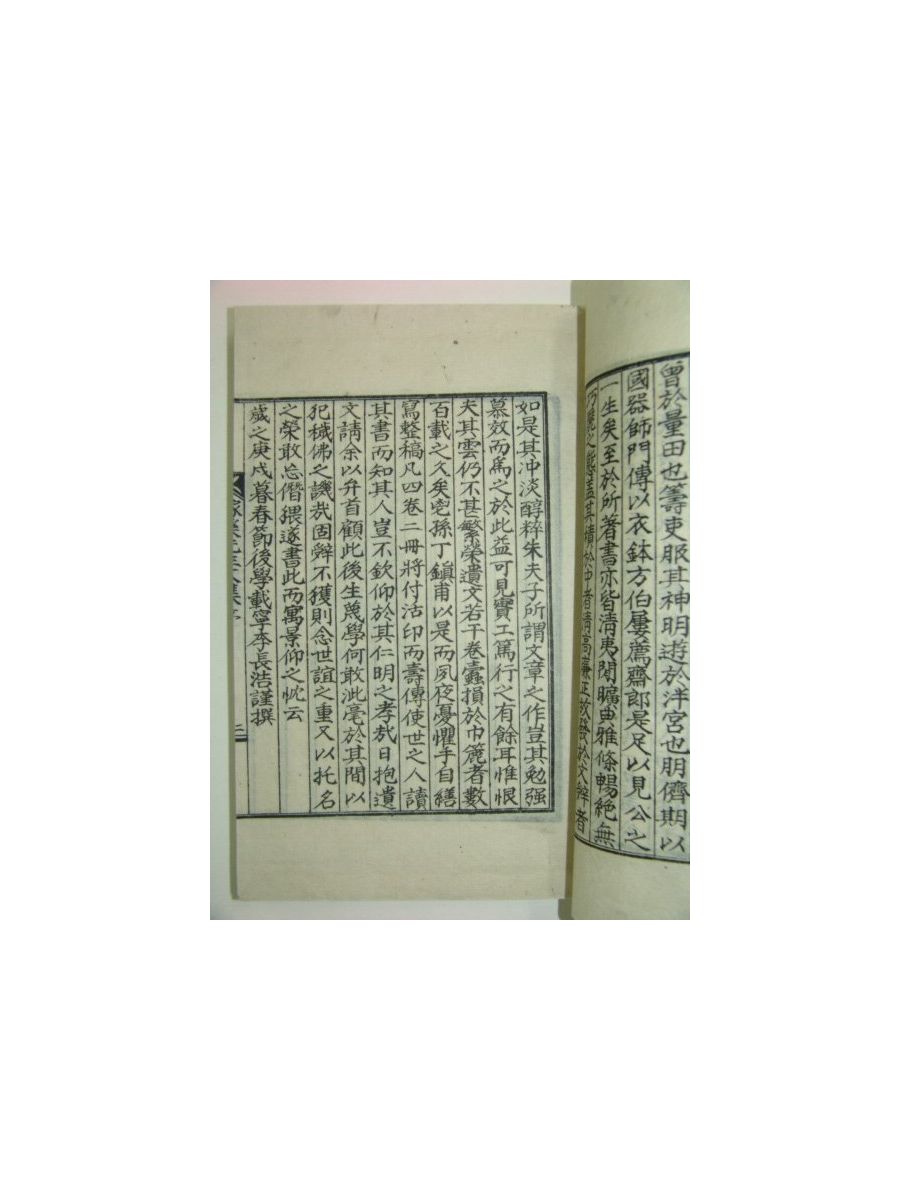 曾於量田也籌吏服其神明遊於泮宮也朋儕期以
國器師門傳以衣鉢方伯屢薦齋郎是足以見公之
一生矣至於所著書亦皆淸夷閒曠典雅條暢絕無
之態盖其積於中者淸高廉正故發於文辭者
如是其沖淡醇粹朱夫子所謂文章之作豈其勉强
慕效而爲之於此益可見實工篤行之有餘耳惟恨
夫其雲仍不甚繁榮遺文若干卷蠹損於巾簏者數
百載之久矣兇孫丁鎭甫以是而夙夜憂懼手自繕
寫整稿凡四卷二冊將付沽印而壽傳使世之人讀
其書而知其人豈不欽仰於其仁明之孝哉日抱遺
文請余以弁首顧此後生蔑學何敢泚毫於其間以
犯穢佛之譏哉固辭不獲則念世誼之重又以托名
之榮敢忘僭猥遂書此而寓景仰之忱云
歲之庚戌暮春節後學載寧李長浩謹撰
三